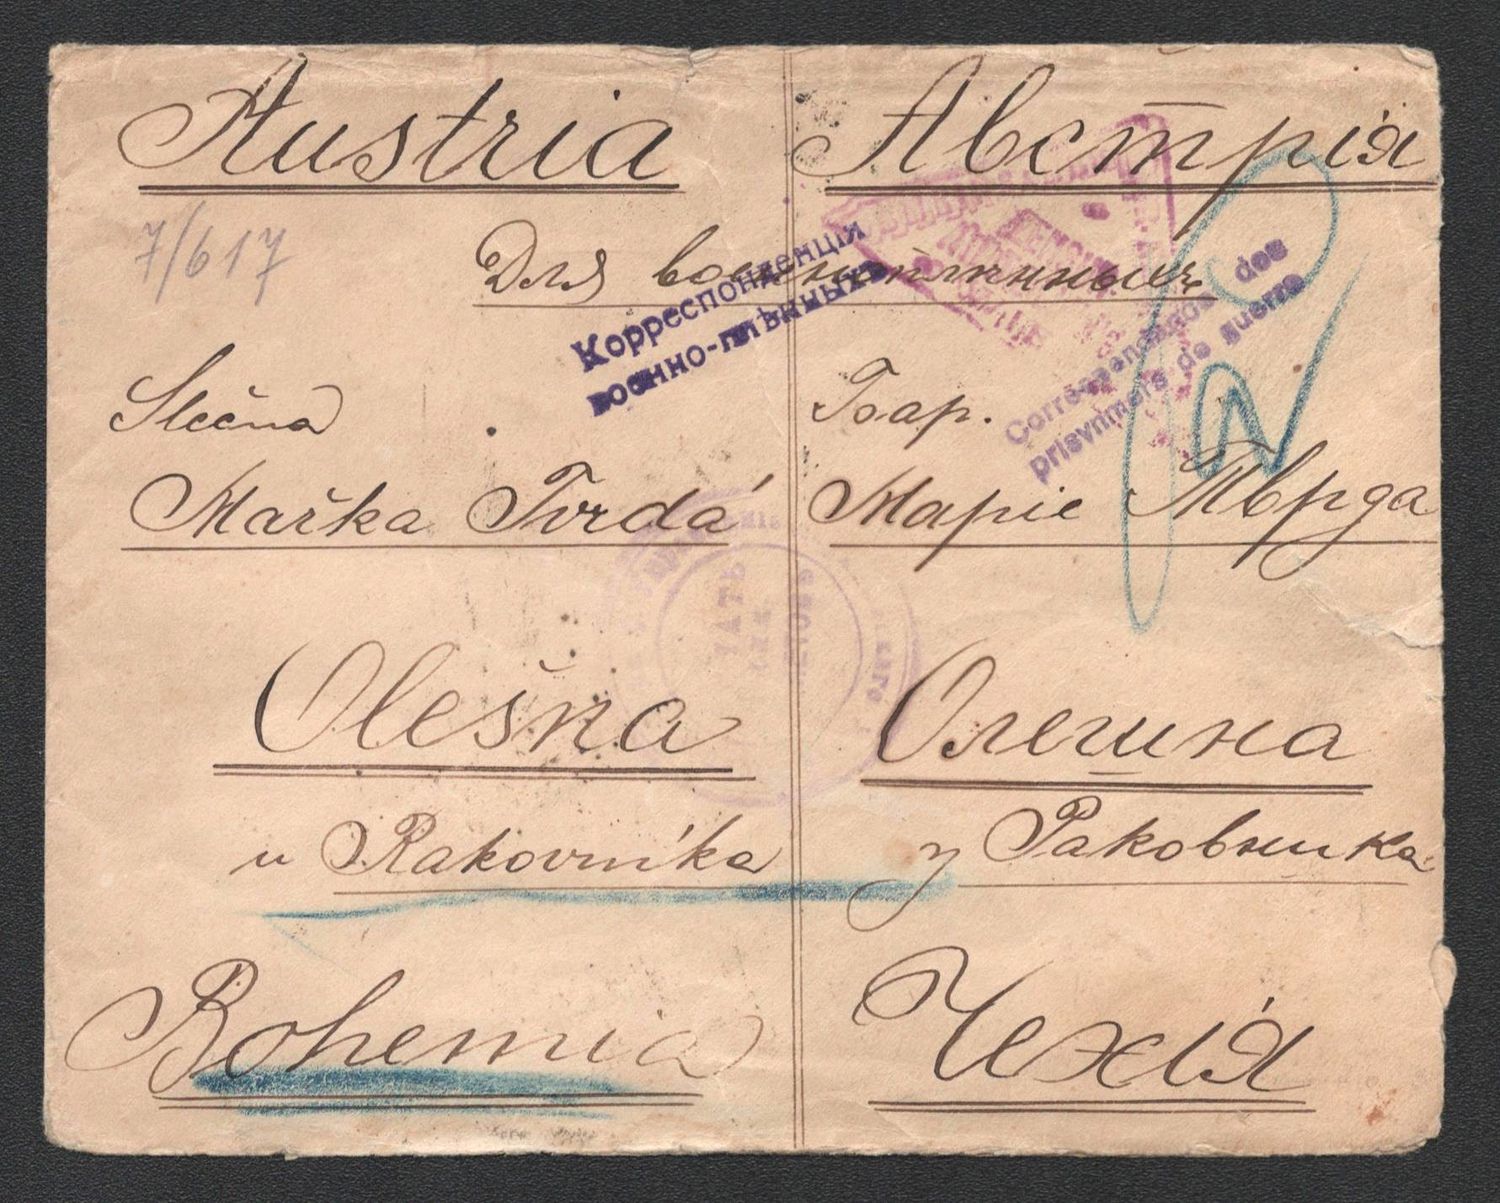 Austria
Австрія
7/617
Для военноплѣнныхъ
Корреспонденція
военно-плѣнныхъ
Correspendance des
prisvnniers de guerre
Slečna
Бар.
Mařka Tvrdá
Маріе Тврда
Olešna
Олешна
u Rakovníka
у Раковника
Bohemia
Чехія